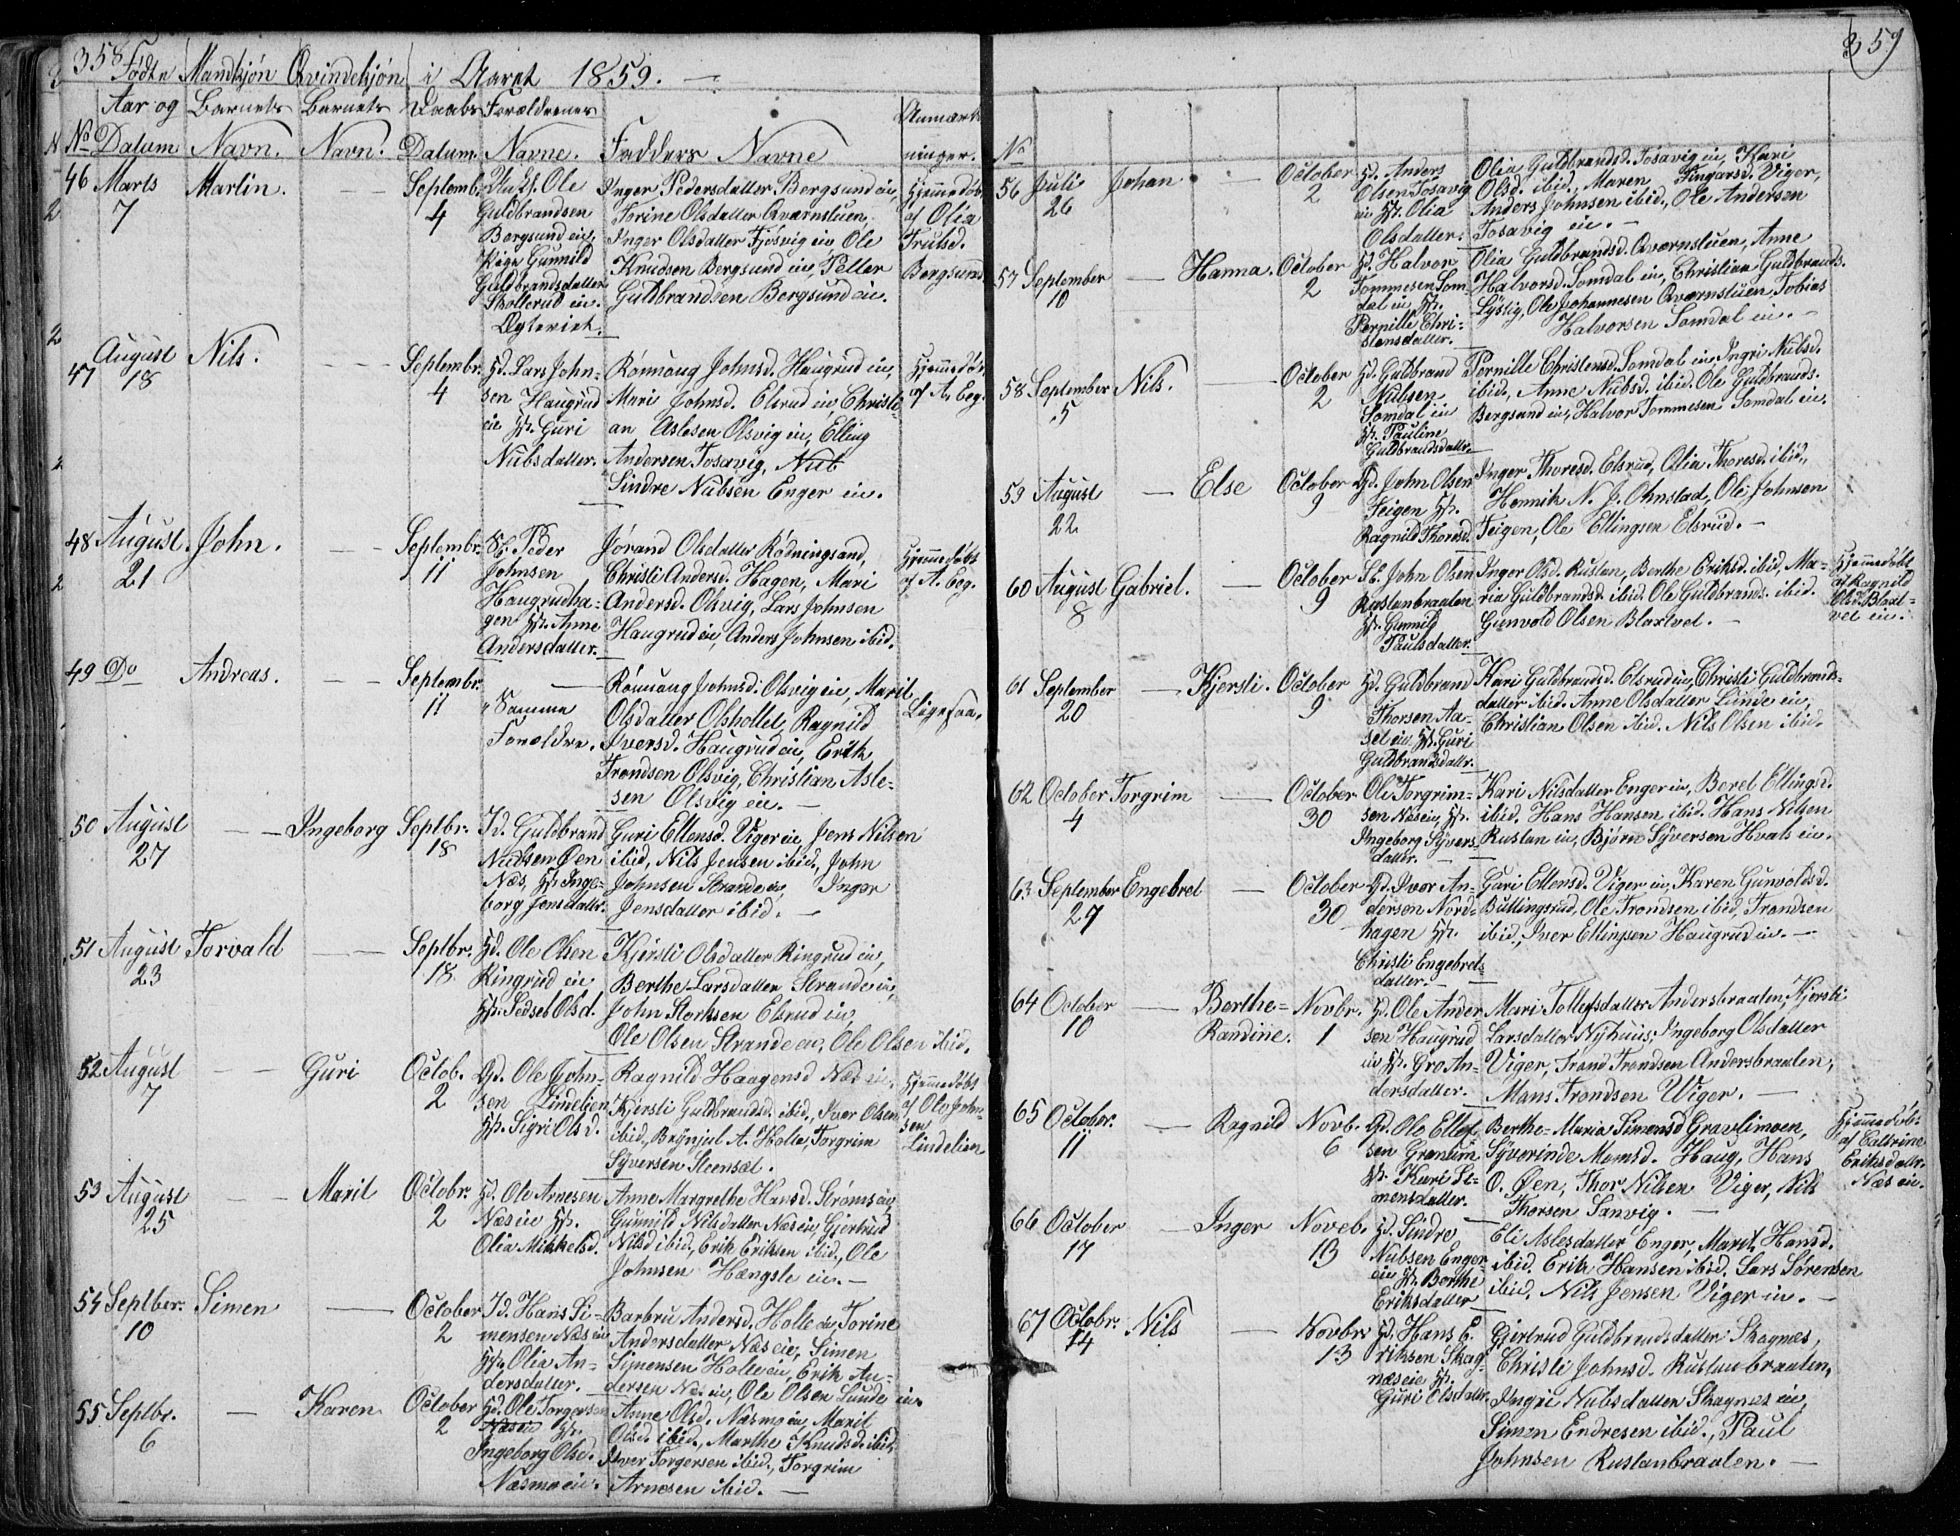 358 Fødte Mandkjøn Qvindekjøn i Aaret 1859.
Aar og Barnets Barnets Daabs Forældrenes Anmærk-
No Datum Navn. Navn. Datum. Navne. Fadders Navne ninger.
46 Marts 7 Martin. — Septemb. 4
Ole
Guldbrandsen
Bergsund eie,
Pige Gunnild
Guldbrandsdatter
Skollerud eie.
Ægteviet.
Inger Pedersdatter Bergsund eie,
Torine Olsdatter Qværnstuen,
Inger Olsdatter Fjösvig eie Ole
Knudsen Bergsund eie, Petter
Guldbrandsen Bergsund eie.
Hjemmedöbt
af Olia
Trulsd.
Bergsund
47 August 18 Nils. — Septembr. 4
Hd. Lars John-
sen Haugrud
eie H. Guri
Nubsdatter.
Rönnoug Johnsd. Haugrud eie,
Mari Johnsd. Elsrud eie, Christi-
an Aslesen Olsvig eie, Elling
Andersen Tosavig, Nub
Sindre Nubsen Enger eie.
Hjemmedöbt
af A. Eeg.
48 August 21 John. — Septembr. 11
Sb. Peder
Johnsen
Haugrudha-
gen H. Anne
Andersdatter.
Jörand Olsdatter Rödningsand,
Christi Andersd. Hagen, Mari
Andersd. Olsvig, Lars Johnsen
Haugrud eie, Anders Johnsen ibid.
Hjemmedöbt
af A. Eeg.
49 Do Andreas. — Septembr. 11
"Samme
Forældre.
Rönnoug Johnsd. Olsvig eie, Marit
Olsdatter Olshollet, Ragnild
Iversd. Haugrud eie, Erik
Trondsen Olsvig, Christian Asle-
sen Olsvig eie. —
Ligesaa.
50 August 27 — Ingeborg Septbr. 18
Id. Guldbrand
Nielsen Öen
Næs, H. Inge-
borg Jensdattr.
Guri Ellensd. Viger eie Jens Nilsen
ibid, Nils Jensen ibid., John
Johnsen Strande eie, Inger
Jensdatter ibid. —
51 August 23 Torvald — Septbr. 18
Hd. Ole Olsen
Ringrud eie
H. Sedsel Olsd.
Kjersti Olsdatter Ringrud eie,
Berthe Larsdatter Strande eie,
John Storksen Elsrud eie,
Ole Olsen Strande eie, Ole Olsen ibid.
52 August 7 — Guri Octob. 2
Gd. Ole John-
sen Lindelien
H. Sigri Olsd.
Ragnild Haagensd Næs eie,
Kjersti Guldbrandsd. ibid., Iver Olsen
ibid, Brynjul A. Holle, Torgrim
Syversen Steensæt.
Hjemmedöbt
af Ole John-
sen
Lindelien
53 August 25 — Marit Octobr. 2
Hd. Ole Arnesen
Næs eie H.
Olia Mikkelsd.
Anne Margrethe Hansd. Ströms eie,
Gunnild Nilsdatter Næs eie, Gjertrud
Nilsd ibid, Erik Eriksen ibid., Ole
Johnsen Hængsle eie. —
54 Septber. 10 Simen — October 2
Id. Hans Si-
mensen Næs eie
H. Olia An-
dersdatter.
Barbru Andersd. Holle eie Torine
Andersdatter Næs eie, Simen
Simensen Holle eie, Erik An-
dersen Næs eie, Ole Olsen Lunde eie.
55 Septbr. 6 — Karen October 2
Hd. Ole Torgersen
Næs eie H.
Ingeborg Olsd.
Næsmo eie.
Anne Olsd. Næsmo eie, Marit
Olsd. ibid., Marthe Knudsd. ibid,
Iver Torgersen ibid., Torgrim
Arnesen ibid. —
359
No
56 Juli 26 Johan — October 2
Hd. Anders
Olsen Tosavig
eie H. Olia
Olsdatter.
Olia Guldbrandsd. Tosavig eie, Kari
Olsd. ibid., Maren Fingarsd. Viger,
Anders Johnsen ibid., Ole Andersen
Tosavig eie. —
57 September 10 — Hanna. October 2
Hd. Halvor
Tommesen Som-
dal eie H.
Pernille Chri-
stensdatter.
Olia Guldbrandsd. Qværnstuen, Anne
Halvorsd. Somdal eie, Christian Guldbrands.
Lystig, Ole Johannesen Qværnstuen, Tobias
Halvorsen Somdal eie. —
58 September 5 Nils. — October 2
Hd. Guldbrand
Nubsen
Somdal eie
H. Pauline
Guldbrandsdattr.
Pernille Christensd. Somdal eie, Ingri Nubsd.
ibid., Anne Nubsd. ibid. Ole Guldbrands.
Bergsund eie, Halvor Tommesen Somdal eie.
59 August 22 — Else October 9
Gd. John Olsen
Feigen H.
Ragnild Thoresd.
Inger Thoresd. Elsrud, Olia Thoresd. ibid.,
Henrik N. J. Ohnstad, Ole Johnsen
Feigen, Ole Ellingsen Elsrud. —
60 August 8 Gabriel. — October 9
Sb. John Olsen
Ruslanbraaten
H. Gunnild
Paulsdatter.
Inger Olsd. Ruslan, Berthe Eriksd. ibid, Ma-
ria Guldbrandsd. ibid. Ole Guldbrands. ibid.
Gunvold Olsen Blaxtvet. —
Hjemmedöbt
af Ragnild
Olsd. Blaxt-
vet eie.
61 September 20 — Kjersti. October 9
Hd. Guldbrand
Thorsen Aa-
set eie H. Guri
Guldbrandsdattr.
Kari Guldbrandsd. Elsrud eie, Christi Guldbrands-
datter ibid. Anne Olsdatter Lunde eie,
Christian Olsen ibid. Nils Olsen ibid.
62 October 4 Torgrim — October 30
Ole Torgrim-
sen Næs eie, H.
Ingeborg Syvers-
datter.
Kari Nilsdatter Enger eie, Beret Ellingsd.
ibid. Hans Hansen ibid. Hans Nilsen
Ruslan eie, Björn Syversen Hvals eie.
63 September 27 Engebret — October 30
Gd. Iver An-
dersen Nord-
hagen H.
Christi Engebrets-
datter. —
Guri Ellensd. Viger eie, Karen Gunvoldsd.
Bullingsrud, Ole Trondsen ibid, Trondsen
ibid., Iver Ellingsen Haugrud eie. —
64 October 10 — Berthe=
Randine. Novbr. 1
Hd. Ole Ander
sen Haugrud
eie H. Gro An-
dersdatter.
Mari Tollefsdatter Andersbraaten, Kjersti
Larsdatter Nyhuus, Ingeborg Olsdatter
Viger, Trond Trondsen Andersbraaten,
Mons Trondsen Viger. —
65 October. 11 — Ragnild Novb. 6
Gd. Ole Ellef
sen Grønlim
H. Kari Si-
mensdatter.
Berthe=Maria Simensd Gravlimoen,
Syverinde Monsd. Haug, Hans
O. Öen, Thor Nilsen Viger, Nils
Thorsen Sanvig. —
Hjemmedöbt
af Cathrine
Eriksdattr.
Næs eie.
66 October 17 — Inger Noveb. 13
Hd. Sindre
Nubsen Enger
eie H. Berthe
Eriksdatter
Eli Aslesdatter Enger, Marit Hansd.
ibid. Erik Hansen ibid. Lars Sörensen
ibid, Nils Jensen Viger eie. —
67 Octobr. 14 Nils — Novbr 13
Hd. Hans E-
riksen Skag-
næs eie H.
Guri Olsdattr.
Gjertrud Guldbrandsdatter Skagnæs,
Christi Johnsd. Ruslanbraaten,
Ingri Nubsdatter Skagnæs eie,
Simen Endresen ibid., Paul
Johnsen Ruslanbraaten. —